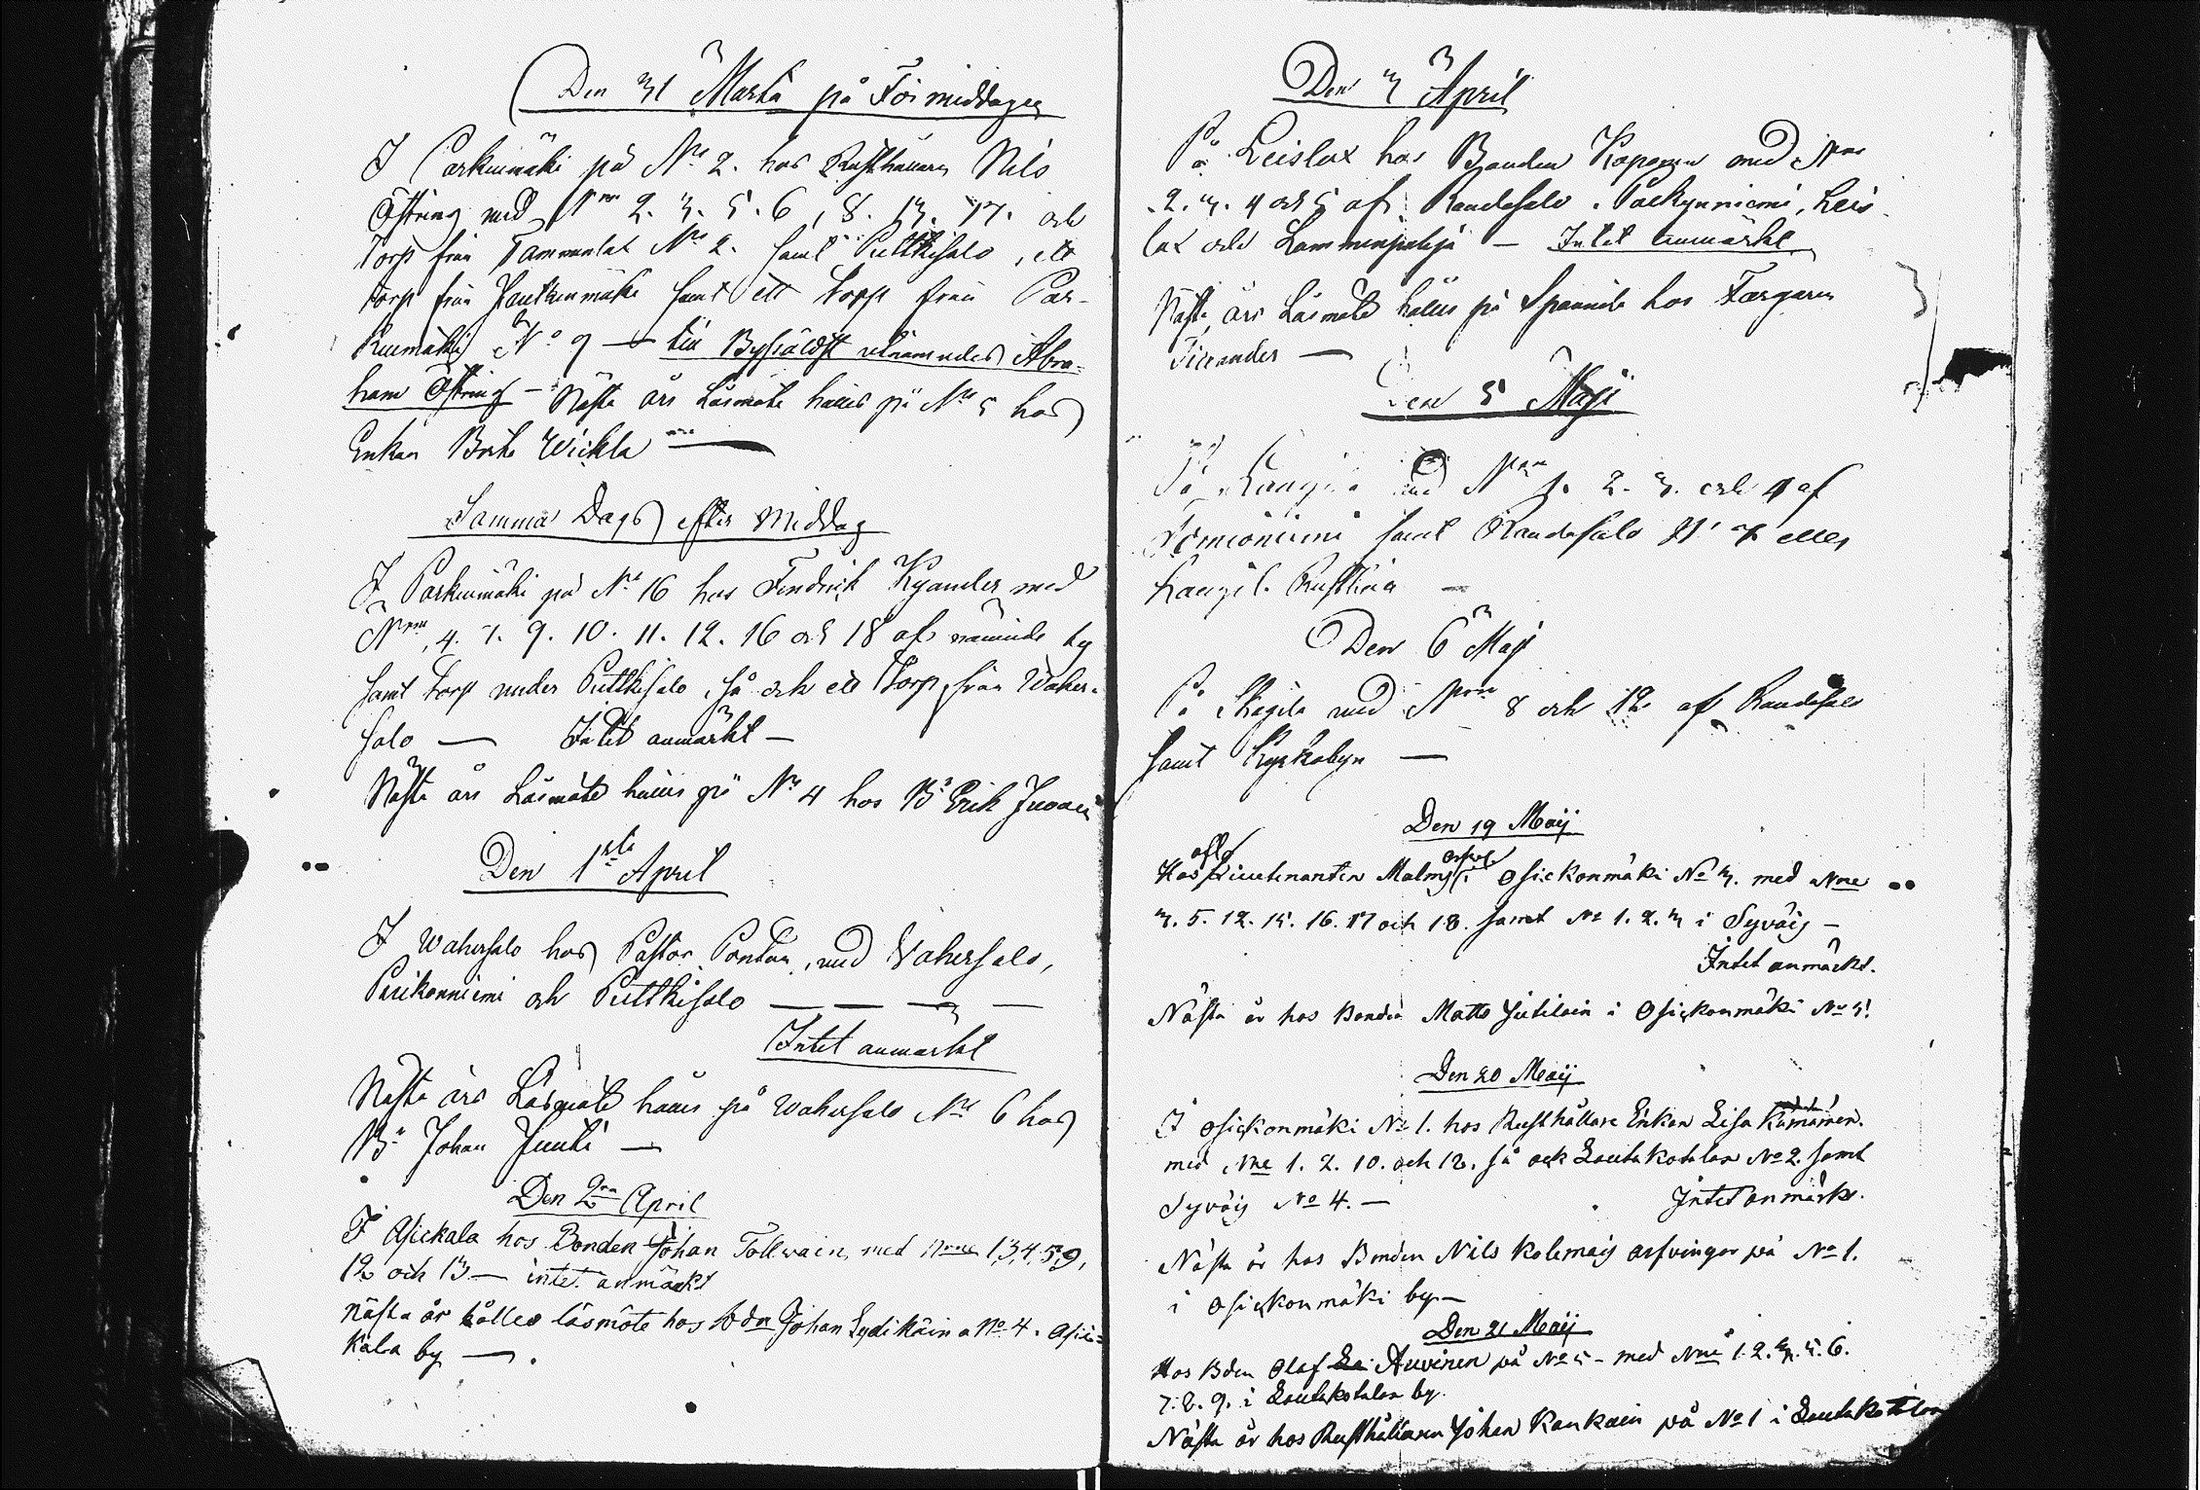 Den 31 Martii på Förmiddagen
I Parkunmäki på No 2. hos Rusthållaren Nils
Östring med Nrne 2. 3. 5. 6, 8. 13. 17. och
Torp från Tammenlax No 2. samt Pulkkisalo, ett
torp från Hautkinmäki samt ett torp från Par-
kunmäki No 9 — till Byfråldst utnämndes Abra-
ham Östring — Nästa års Läsmöte hålles på No 5 hos
Enkan Brita Wickla
Samma Dags efter Middag
I Parkunmäki på No 16 hos Fredrich Kyander med
Nrne, 4. 7. 9. 10. 11. 12. 16 och 18 af nämnde by
samt torp under Pulkkisalo, så och ett Torp från Waher-
salo — Intet anmärkt —
Nästa års Läsmöte hålles på No 4 hos Bn Erik Juvain
Den 1sta April
I Wahersalo hos Pastor Pontan, med Wahersalo,
Purikonniemi och Pulkkisalo — — — —
Intet anmärkt
Nästa års Läsmöte hålles på Wahersalo No 6 hos
Bn Johan Juuti —
Den 2ra April
I Asickala hos Bonden Johan Tollwain med Nrne 1,3,4,5,9,
12 och 13 — intet anmärkt
nästa år hålles läsmöte hos Bdn Johan Lydikäin a No 4. Asic=
kala by — .
Den 3 April
På Leislax hos Bonden Kopponen med Nrne
2. 3. 4 och 5 af Randasalo, Packynniemi, Leis
lax och Lammenpohja — Intet anmärkt
Nästa års Läsmöte hålles på Spannila hos Färgaren
Ticcander —
Den 5 Maji
På Kangi med Nrne 1. 2. 3. och 4 af
Tomioniemi samt Randasalo No 7 eller
Kangil. Rusthåll —
Den 6 Maji
På Skogila med Nrne 8 och 12 af Randasalo
samt Kyrkobyn —
Den 19 Maij
Hos Lieutenanten Malmg i Osickonmäki No 3. med Nrne
3. 5. 12. 15. 16. 17 och 18. samt No 1. 2. 3 i Syväis —
Intet anmärkt.
Nästa år hos Bonden Matts Jutilain i Osickonmäki No 5.
Den 20 Maij
I Osickonmäki No 1. hos Rusthållare Enkan Lisa Kämäräinen.
med Nrne 1. 2. 10. och 12. så ock Loutakotalax No 2. samt
Syväis No 4. — Intet anmärkt.
Nästa år hos Bonden Nils Kolemais arfvingar på No 1.
i Osickonmäki by —
Den 21 Maij
Hos Bden Olaf Auvinen på No 5 — med Nrne 1. 2. 3. 5. 6.
7. 8. 9. i Loutakotalax by.
Nästa år hos Rusthållaren Johan Kankain på No 1 i Loutakotalax